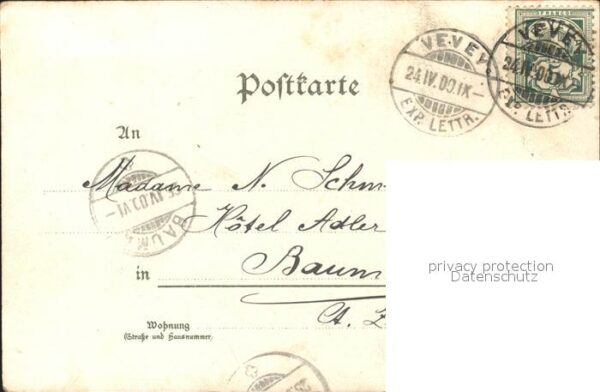 FRANCO
VEVEY
24.IV.00.IX-
EXP. LETTR.
VEVEY
24.IV.00.IX
EXP. LETTR.
Postkarte
An
Madame N. Schm
Hôtel Adler
in Baum
A. Z
IV.00.VI-
BAUM
Wohnung
(Straße und Hausnummer)
privacy protection
Datenschutz